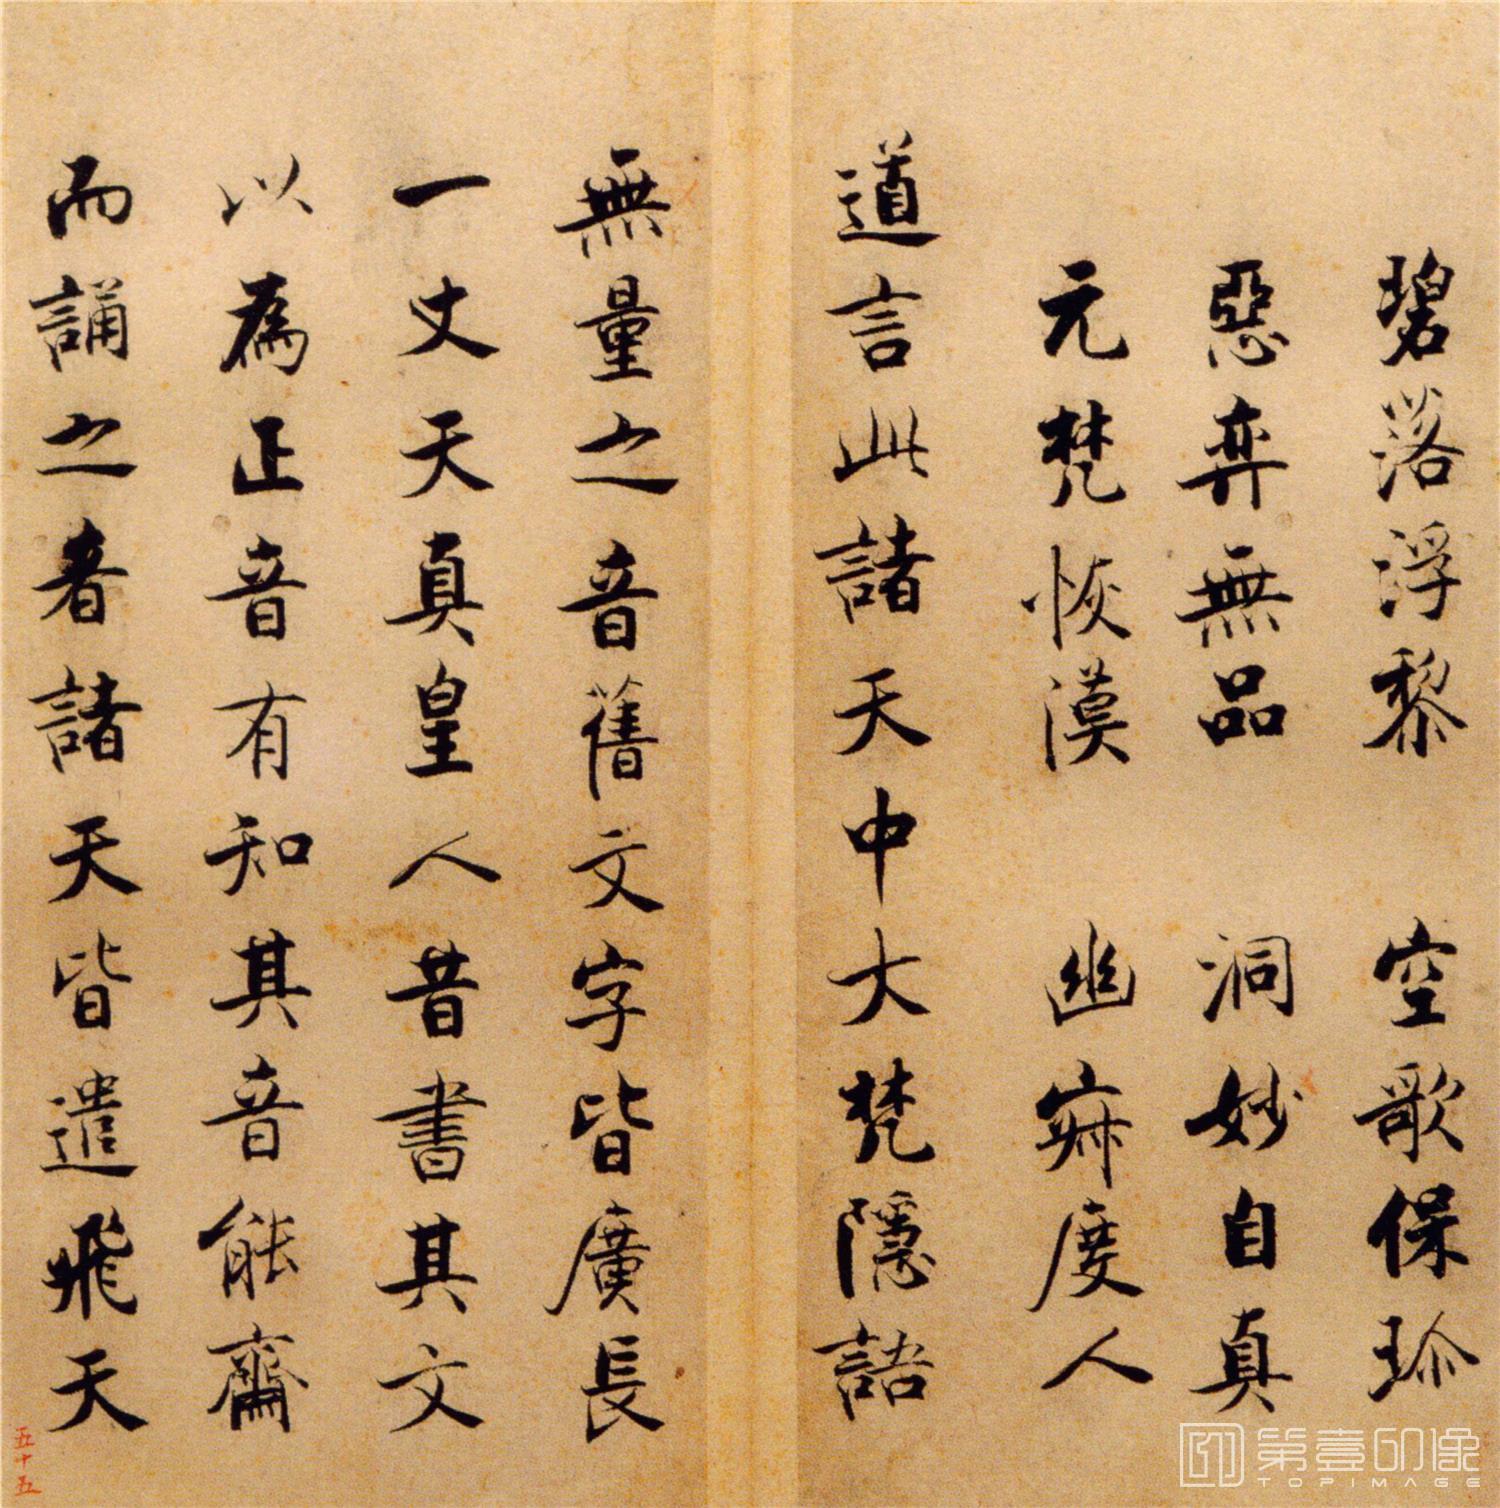 碧落浮黎　空歌保珎
惡弈無品　洞妙自真
元梵恢漠　幽寂度人
道言此諸天中大梵隱語
無量之音舊文字皆廣長
一丈天真皇人昔書其文
以為正音有知其音能齋
而誦之者諸天皆遣飛天
五十五
第壹印像
TOPIMAGE